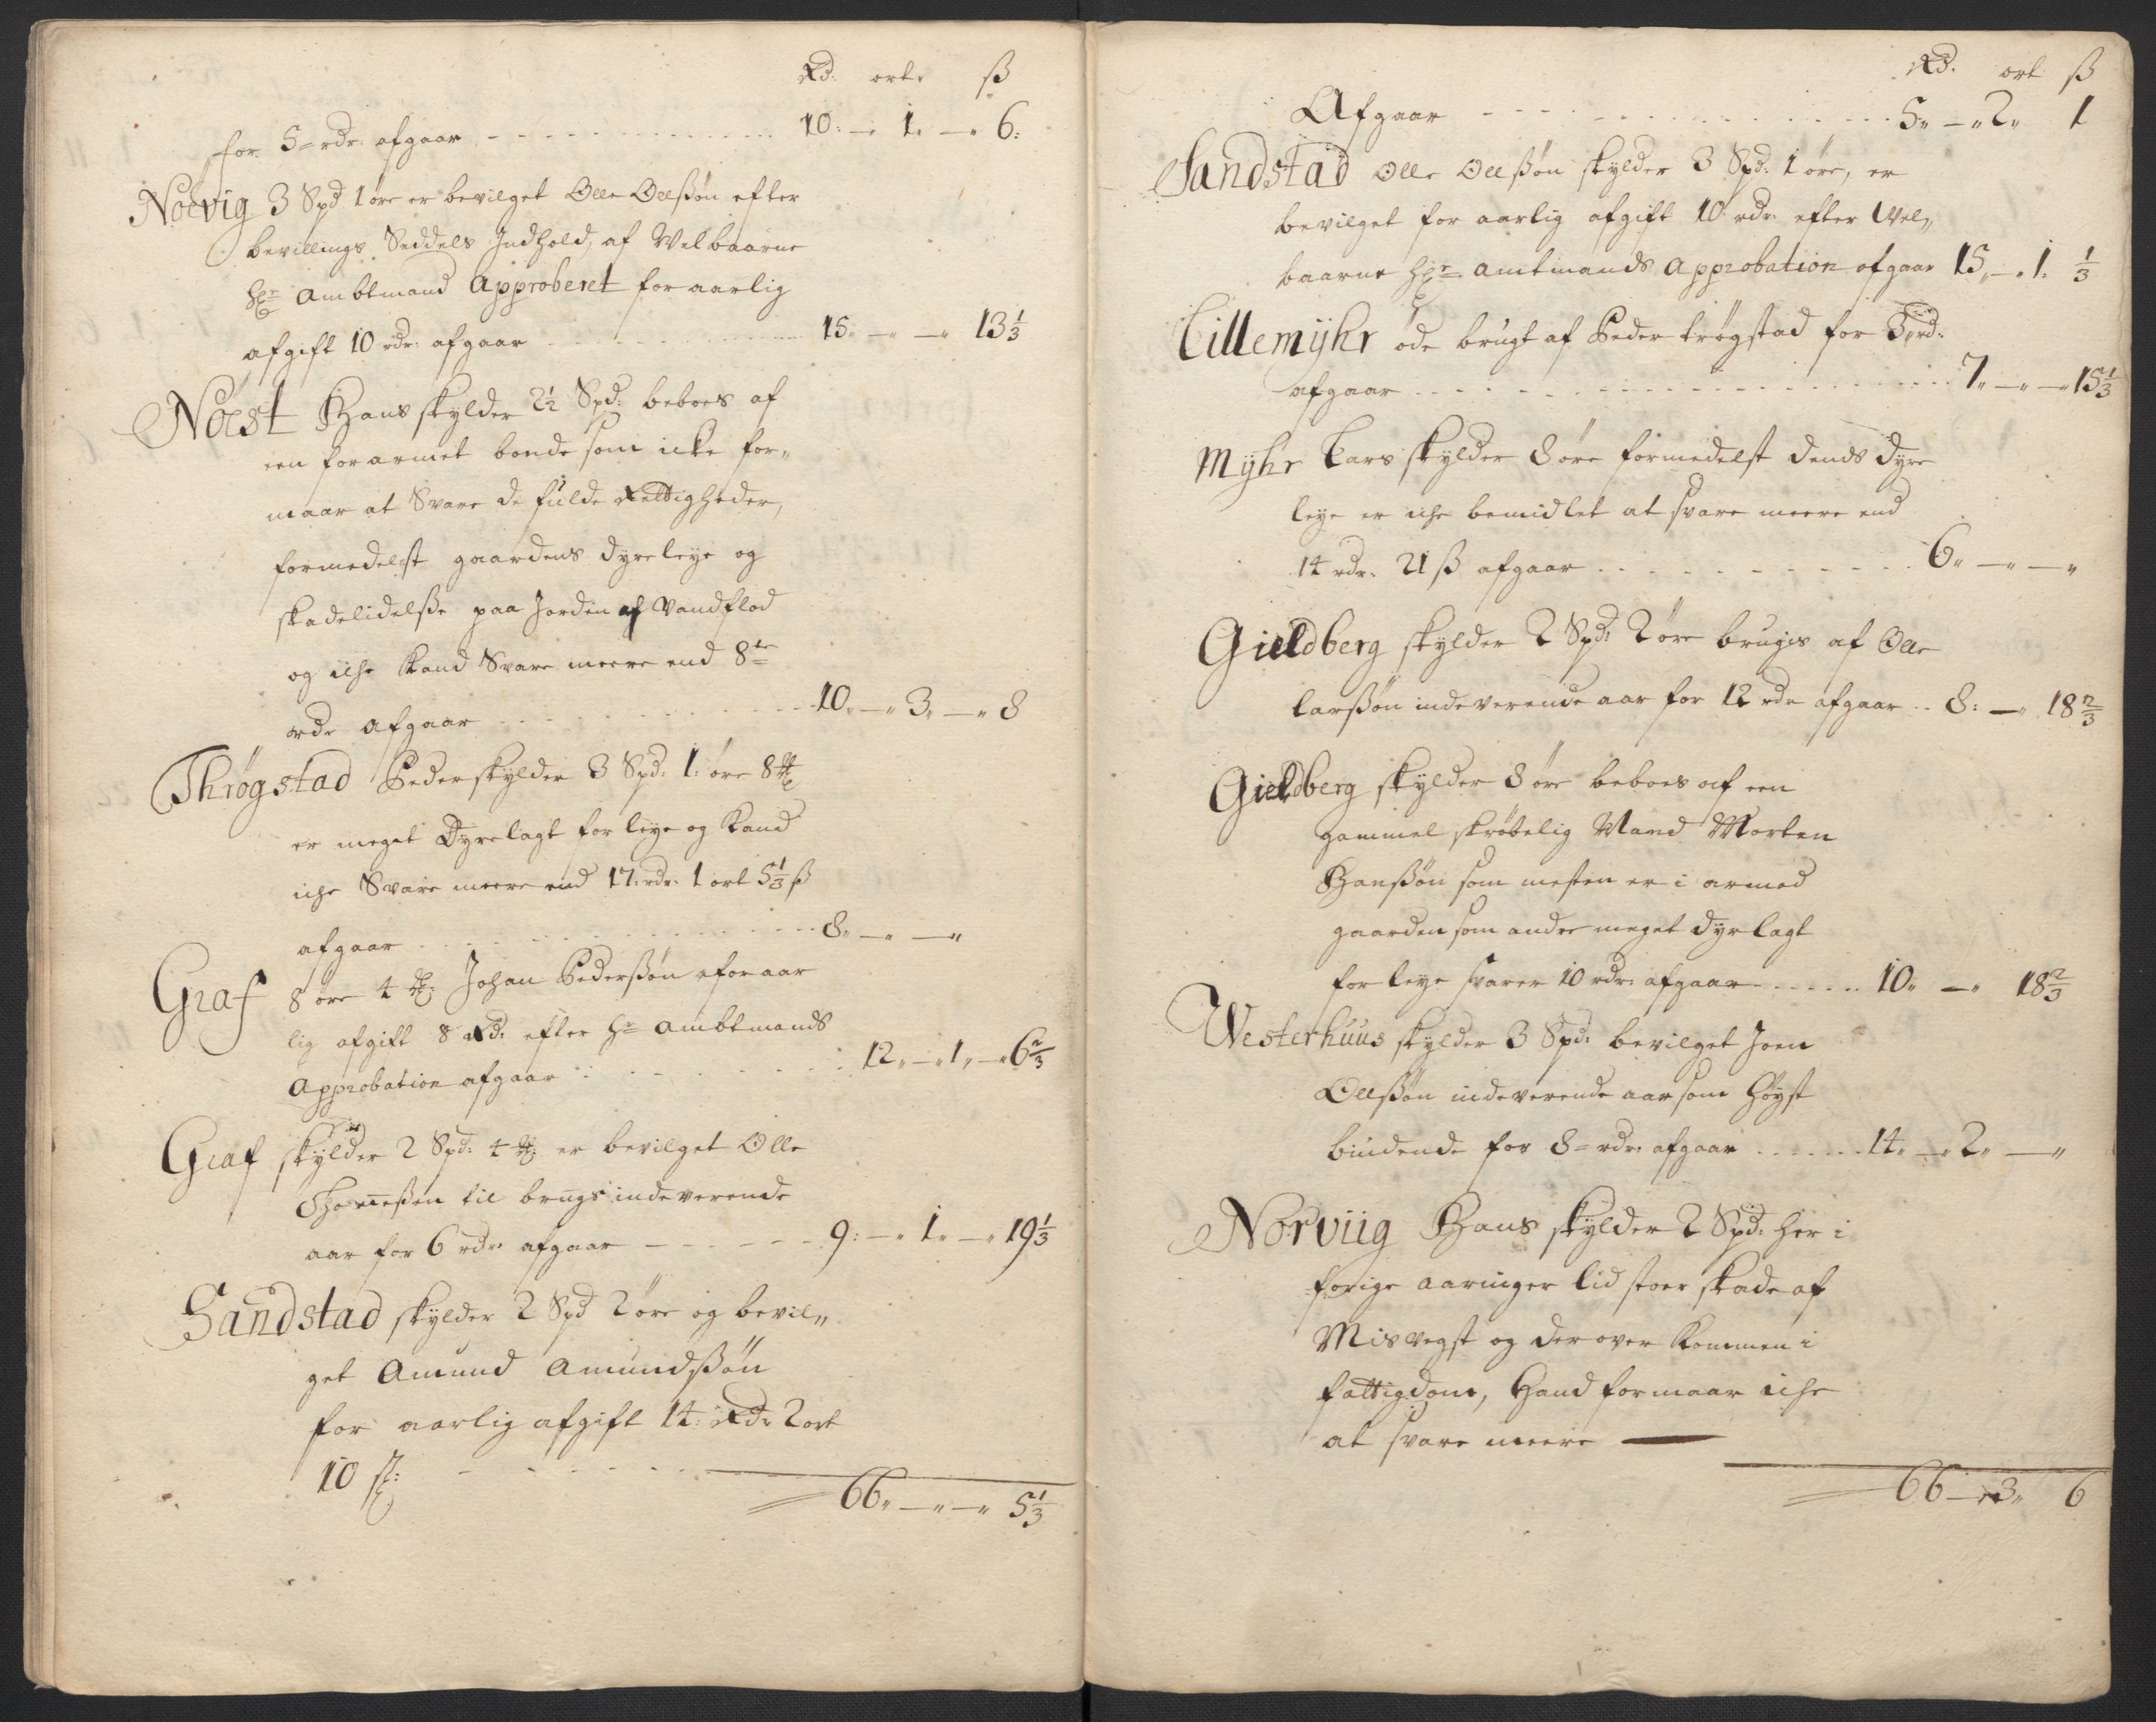 Rd: ort ß
for 5 rdr: afgaar 10: 1. 6:
Norvig 3 Spd 1 øre er bevilget Olle Ollßøn efter
bevillings Seddels Indhold, af Velbaarne
Hr: Ambtmand Approberet for aarlig
afgift 10 rdr: afgaar 15 13 1/3
Norst Hans skylder 2 1/2 Spd: beboes af
een forarmet bonde som icke for„
maar at Svare de fulde Rettigheder,
formedelst gaardens dyre leye og
skadelidelße paa Jorden af Vandflod
og iche kand Svare meere end 8te
rdr afgaar 10 3 8
Thrøgstad Peder skylder 3 Spd: 1: øre 8 #
er meget Dyre lagt for leye og kand
iche Svare meere end 17 rdr: 1 ort 5 1/3 ß
afgaar 8
Graf 8 øre 4 # Johan Pederßøn for aar
lig afgift 8 Rd: efter Hr Ambtmands
Approbation afgaar 12 1 6 2/3
Graf skylder 2 Spd: 4 # er bevilget Olle
til brugs indeverende
aar for 6 rdr: afgaar 9: 1 19 1/3
Sandstad skylder 2 Spd 2 øre og bevil„
get Amund Amundßøn
for aarlig afgift 14: Rdr 2 ort
10 ß:
66 5 1/3
Rd. ort ß
Afgaar 5 2 1
Sandstad Olle Ollßøn skylder 3 Spd: 1 øre, er
bevilget for aarlig afgift 10 rdr: efter Vel„
baarne Hr: Amtmands Approbation afgaar 15 1. 1/3
Lillemyhr øde brugt af Peder trøgstad for 3 rd:
afgaar 7 15 1/3
Myhr Lars skylder 8 øre formedelst dends dyre
leye er iche bemidlet at svare meere end
14 rdr: 21 ß afgaar 6
Gieldberg skylder 2 Spd: 2 øre bruges af Olle
larßøn indeverende aar for 12 rdr afgaar 8: 18 2/3
Gieldberg skylder 8 øre beboes af een
gammel skrøbelig Mand Morten
Hanßøn som mesten er i armod
gaarden som andre meget dyr lagt
for leye svarer 10 rdr: afgaar 10 18 2/3
Westerhuus skylder 3 Spd: bevilget Joen
Ollßøn indeverende aar som høyst
biudende for 8 rdr: afgaar 14 2
Norviig Hans skylder 2 Spd: her i
forige aaringer lid stoer skade af
Misvegst og der over kommen i
fattigdom, Hand formaar iche
at svare meere
66 3 6